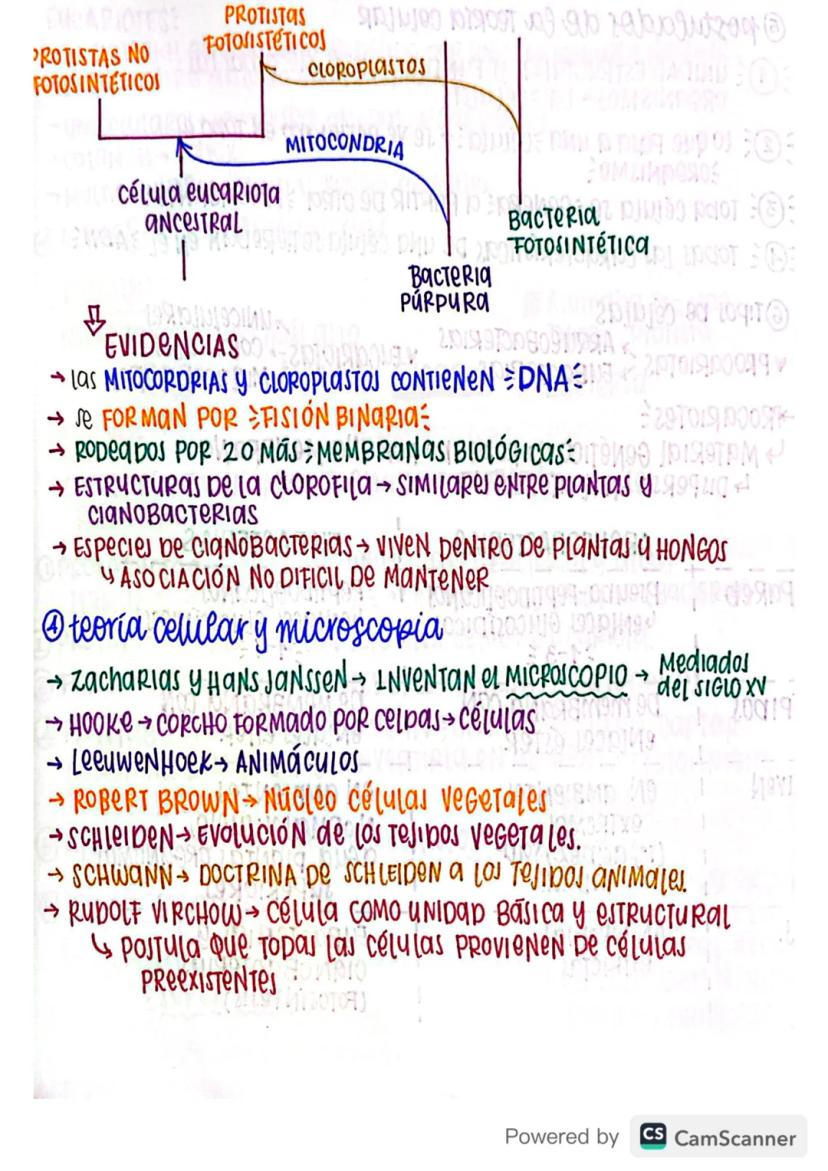 PROTISTAS
FOTOSISTÉTICOS
PROTISTAS NO
FOTOSINTÉTICOS
CLOROPLASTOS
MITOCONDRIA
célula eucariota
ancestral
BACTERIA
FOTOSINTÉTICA
BACTERIA
PÚRPURA
EVIDENCIAS
→ las MITOCORDRIAS y CLOROPLASTOS CONTIENEN DNA
→ se FORMAN POR FISIÓN BINARIA
→ RODEADOS POR 2 O MÁS MEMBRANAS BIOLÓGICAS
→ ESTRUCTURAS DE LA CLOROFILA → SIMILARES ENTRE PLANTAS y
CIANOBACTERIAS
→ ESPECIES DE CIANOBACTERIAS → VIVEN DENTRO DE PLANTAS y HONGOS
↳ ASOCIACIÓN NO DIFICIL DE MANTENER
④ teoría celular y microscopia
→ Zacharias y Hans Janssen → INVENTAN el MICROSCOPIO → Mediados
del SIGLO XV
→ HOOKE → CORCHO FORMADO POR CELDAS → CÉLULAS
→ LEEUWENHOEK → ANIMÁCULOS
→ ROBERT BROWN → NÚCLEO CÉLULAS VEGETALES
→ SCHLEIDEN → EVOLUCIÓN de los TEJIDOS VEGETALES.
→ SCHWANN → DOCTRINA DE SCHLEIDEN a los TEJIDOS ANIMALES.
→ RUDOLF VIRCHOW → CÉLULA COMO UNIDAD BÁSICA y ESTRUCTURAL
↳ POSTULA QUE TODAS LAS CÉLULAS PROVIENEN DE CÉLULAS
PREEXISTENTES
Powered by CS CamScanner